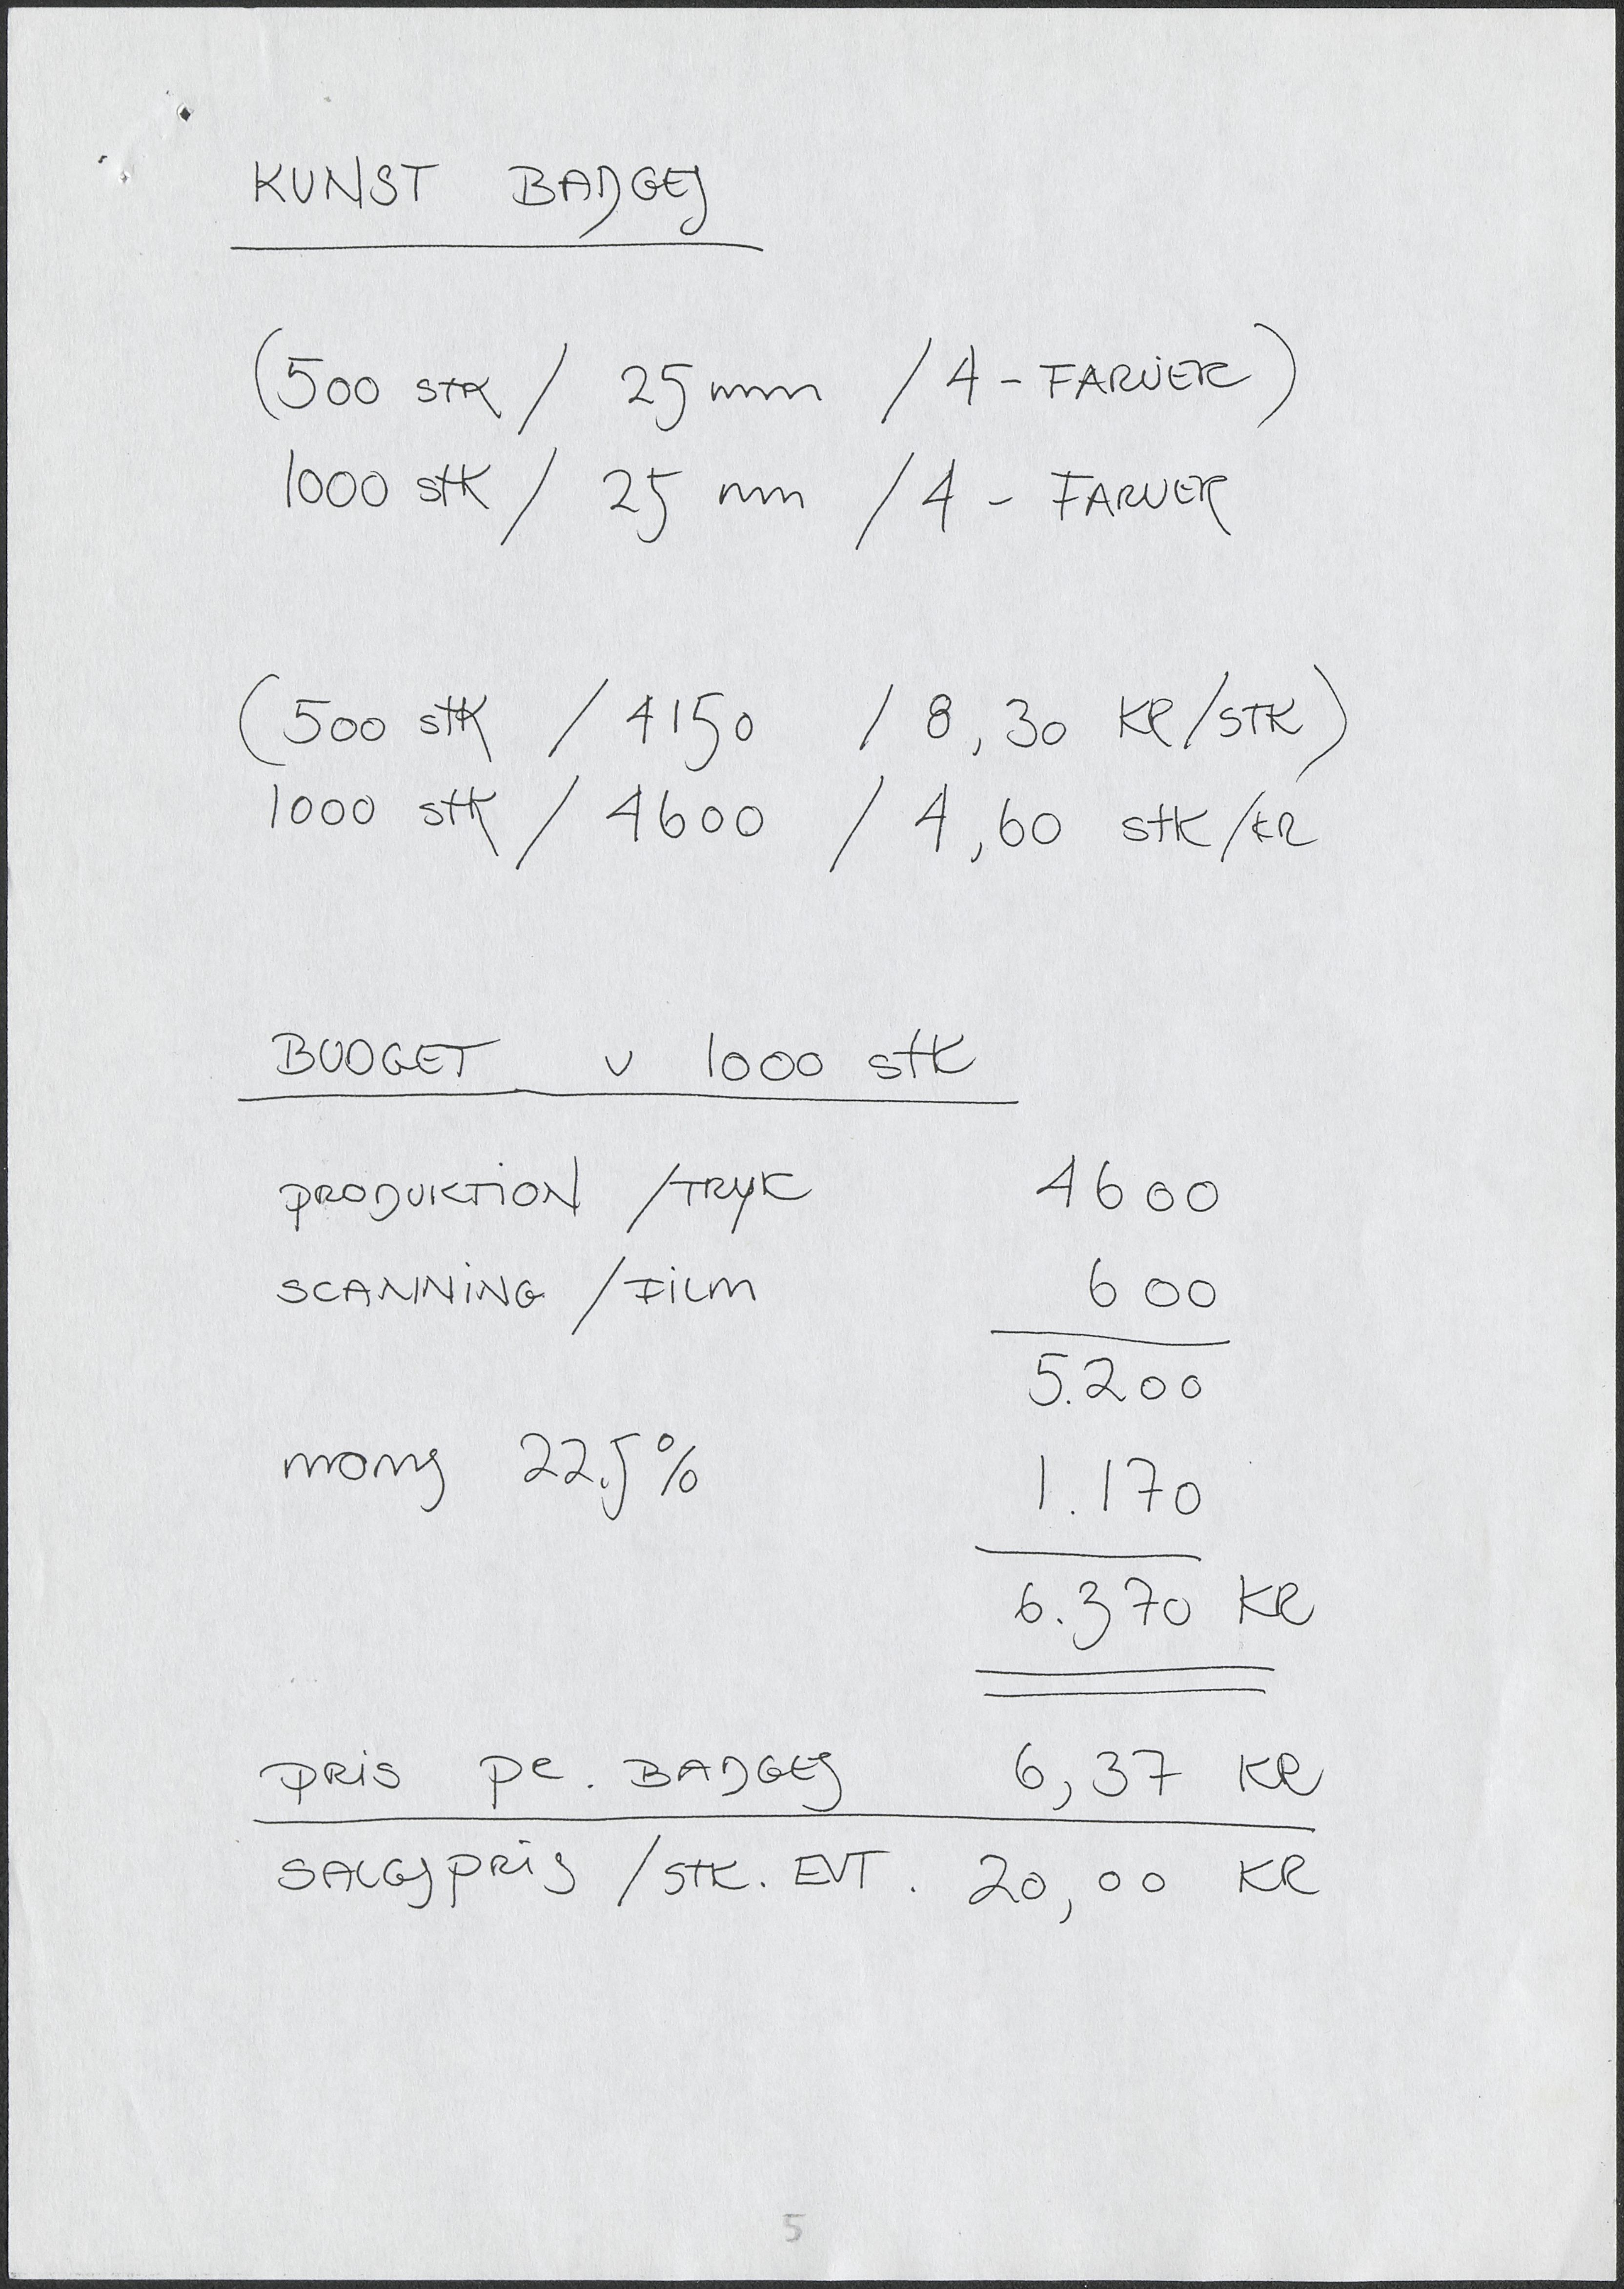 KUNST BADGES
(500 STK / 25 mm / 4 - FARVER)
1000 STK / 25 mm / 4 - FARVER
(500 STK / 4150 / 8,30 KR/STK)
1000 STK / 4600 / 4,60 STK/KR
BUDGET v 1000 STK
PRODUKTION /TRYK 4600
SCANNING /FILM 600
5.200
moms 22.5% 1.170
6.370 KR
PRIS PR. BADGES 6,37 KR
SALGSPRIS /STK. EVT. 20,00 KR
5